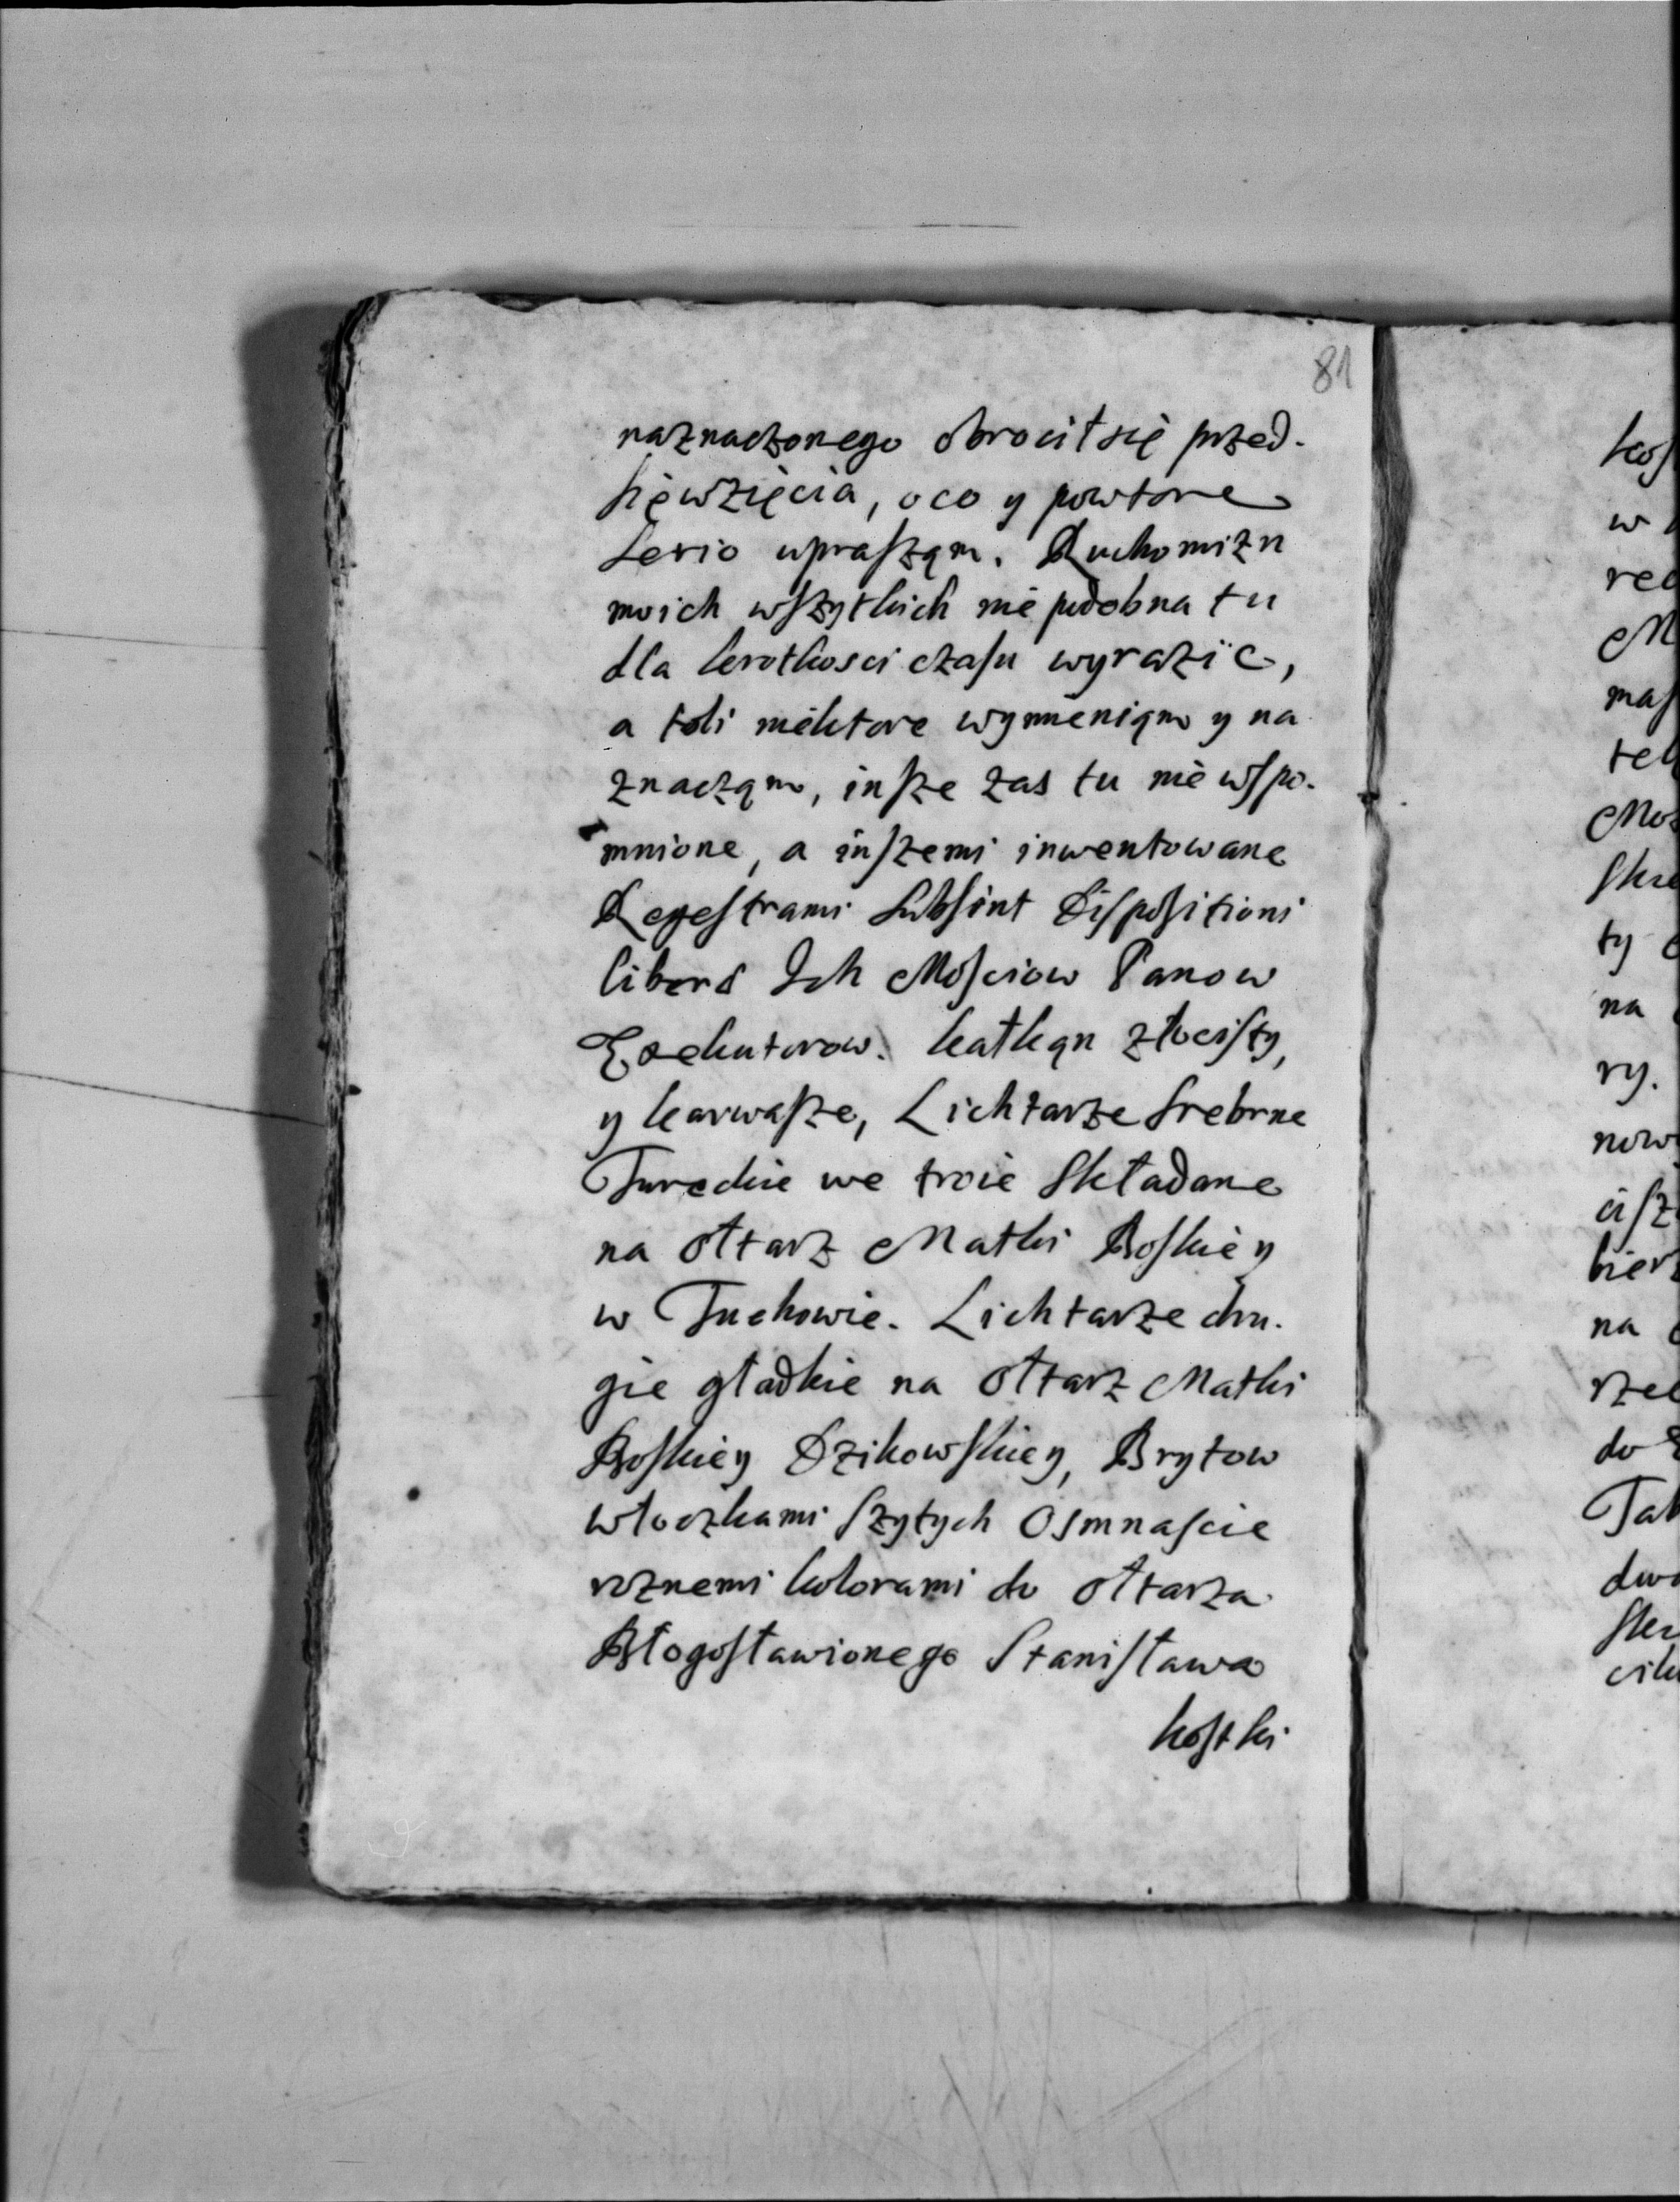 81
naznaczonego obrocił się przed-
sięwzięcia, oco y powtore
serio uprasząm. Ruchomizn
moich wszytkich nie podobna tu
dla krotkosci czasu wyrazic,
a toli niektore wymieniąm y na
znacząm, insze zas tu nie wspo-
mnione, a inszemi inwentowane
Regestrami subsint Dispositioni
libera Ich Mosciow Panow
Exekutorow. kałkąn złocisty,
y karwasze, Lichtarze srebrne
Tureckie we troie składane
na ołtarz Matki Boskiey
w Tuchowie. Lichtarze dru-
gie gładkie na ołtarz Matki
Boskiey Dzikowskiey, Brytow
włoczkami szytych osmnascie
roznemi kolorami do ołtarza
Błogosławionego Stanisława
kostki
w
na
ry.
na